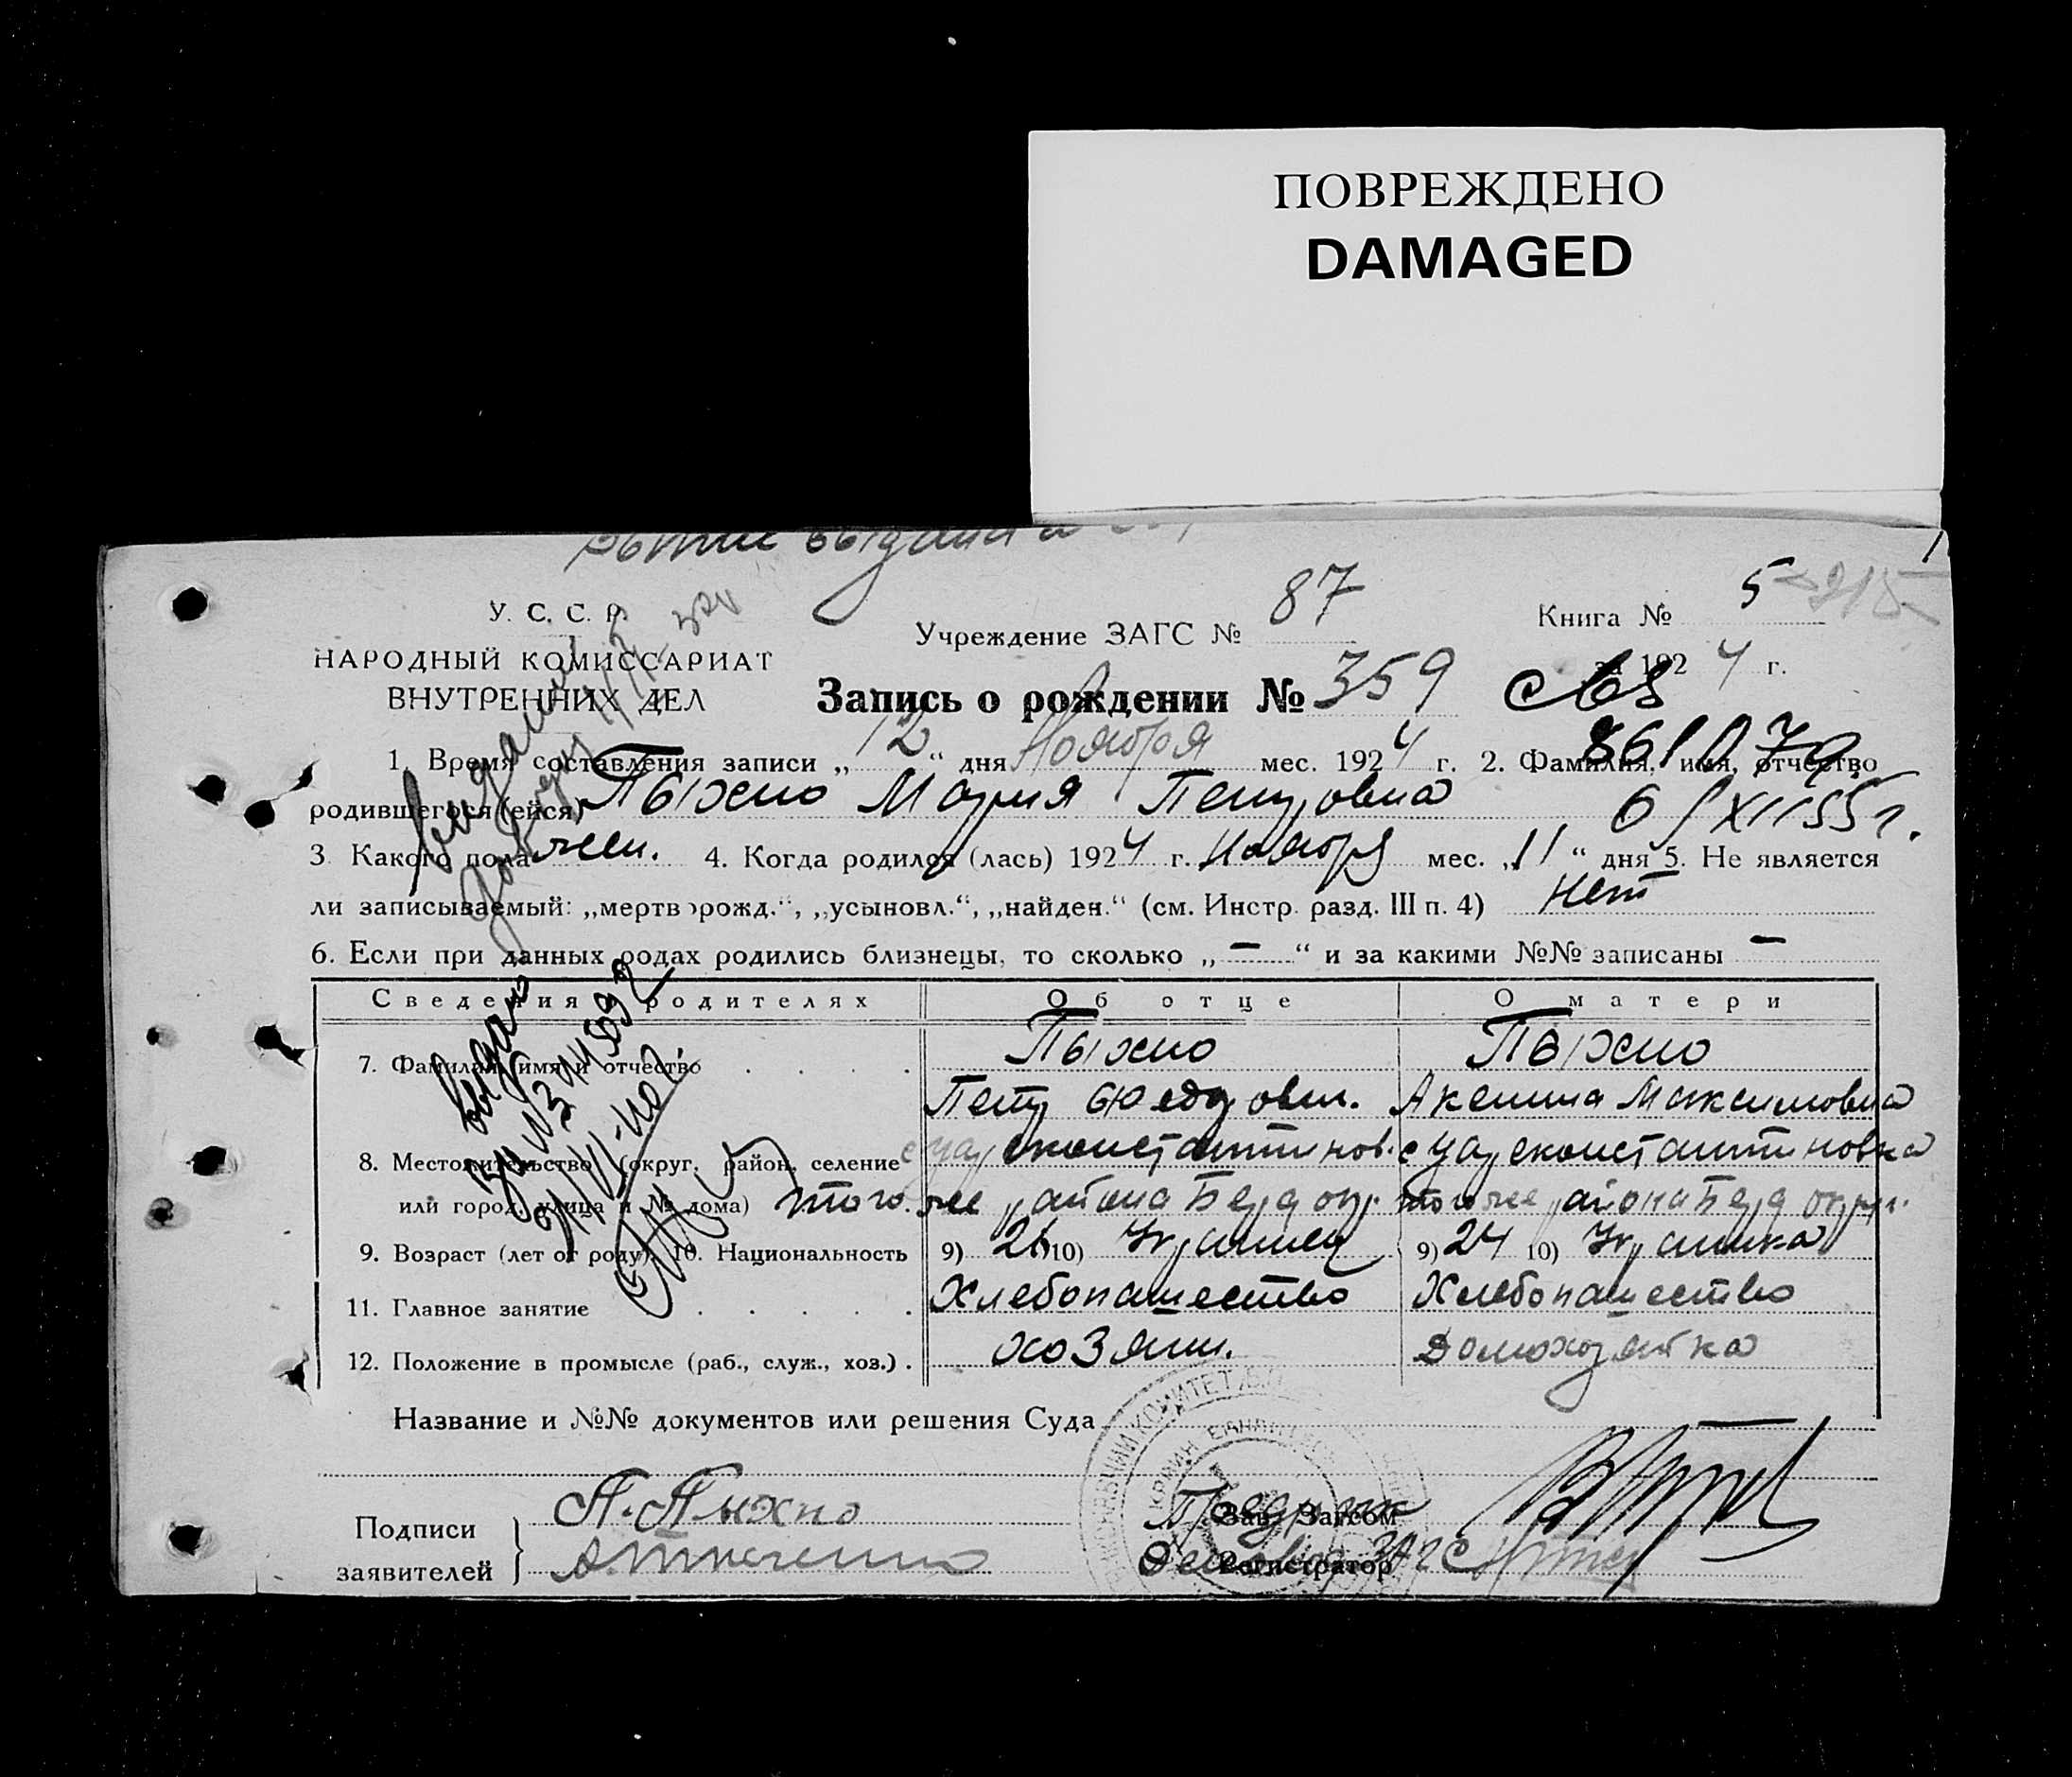 ПОВРЕЖДЕНО
DAMAGED
5
У. С. С. Р.
87
Книга №
Учреждение ЗАГС №
НАРОДНЫЙ КОМИССАРИАТ
за 1924 г.
ВНУТРЕННИХ ДЕЛ
Запись о рождении № 359
1. Время составления записи „12“ дня Ноября мес. 1924 г. 2. Фамилия, имя, отчество
родившегося (ейся) Пыхно Мария Петровна
6/XII 55 г.
3 Какого пола жен. 4. Когда родился (лась) 1924 г. Ноября мес. „11“ дня 5. Не является
ли записываемый: „мертворожд.“, „усыновл.“, „найден.“ (см. Инстр. разд. III п. 4) нет
6. Если при данных родах родились близнецы, то сколько „—“ и за какими №№ записаны —
Сведения о родителях Об отце О матери
7. Фамилия, имя и отчество Пыхно Пыхно
Петр Федоров. Акенина Максимовна
8. Местожительство (округ, район, селение с Цареконстантинов. с Цареконстантиновка
или город, улица и № дома) того же района Берд окр. того же района Берд округ.
9. Возраст (лет от роду). 10. Национальность 9) 26 10) Украинец 9) 24 10) Украинка
11. Главное занятие Хлебопашество Хлебопашество
12. Положение в промысле (раб., служ., хоз.) хозяин. Домохозяйка
Название и №№ документов или решения Суда
Подписи заявителей
П. Пыхно
А. Ткаченко
Зав. Загсом
Регистратор